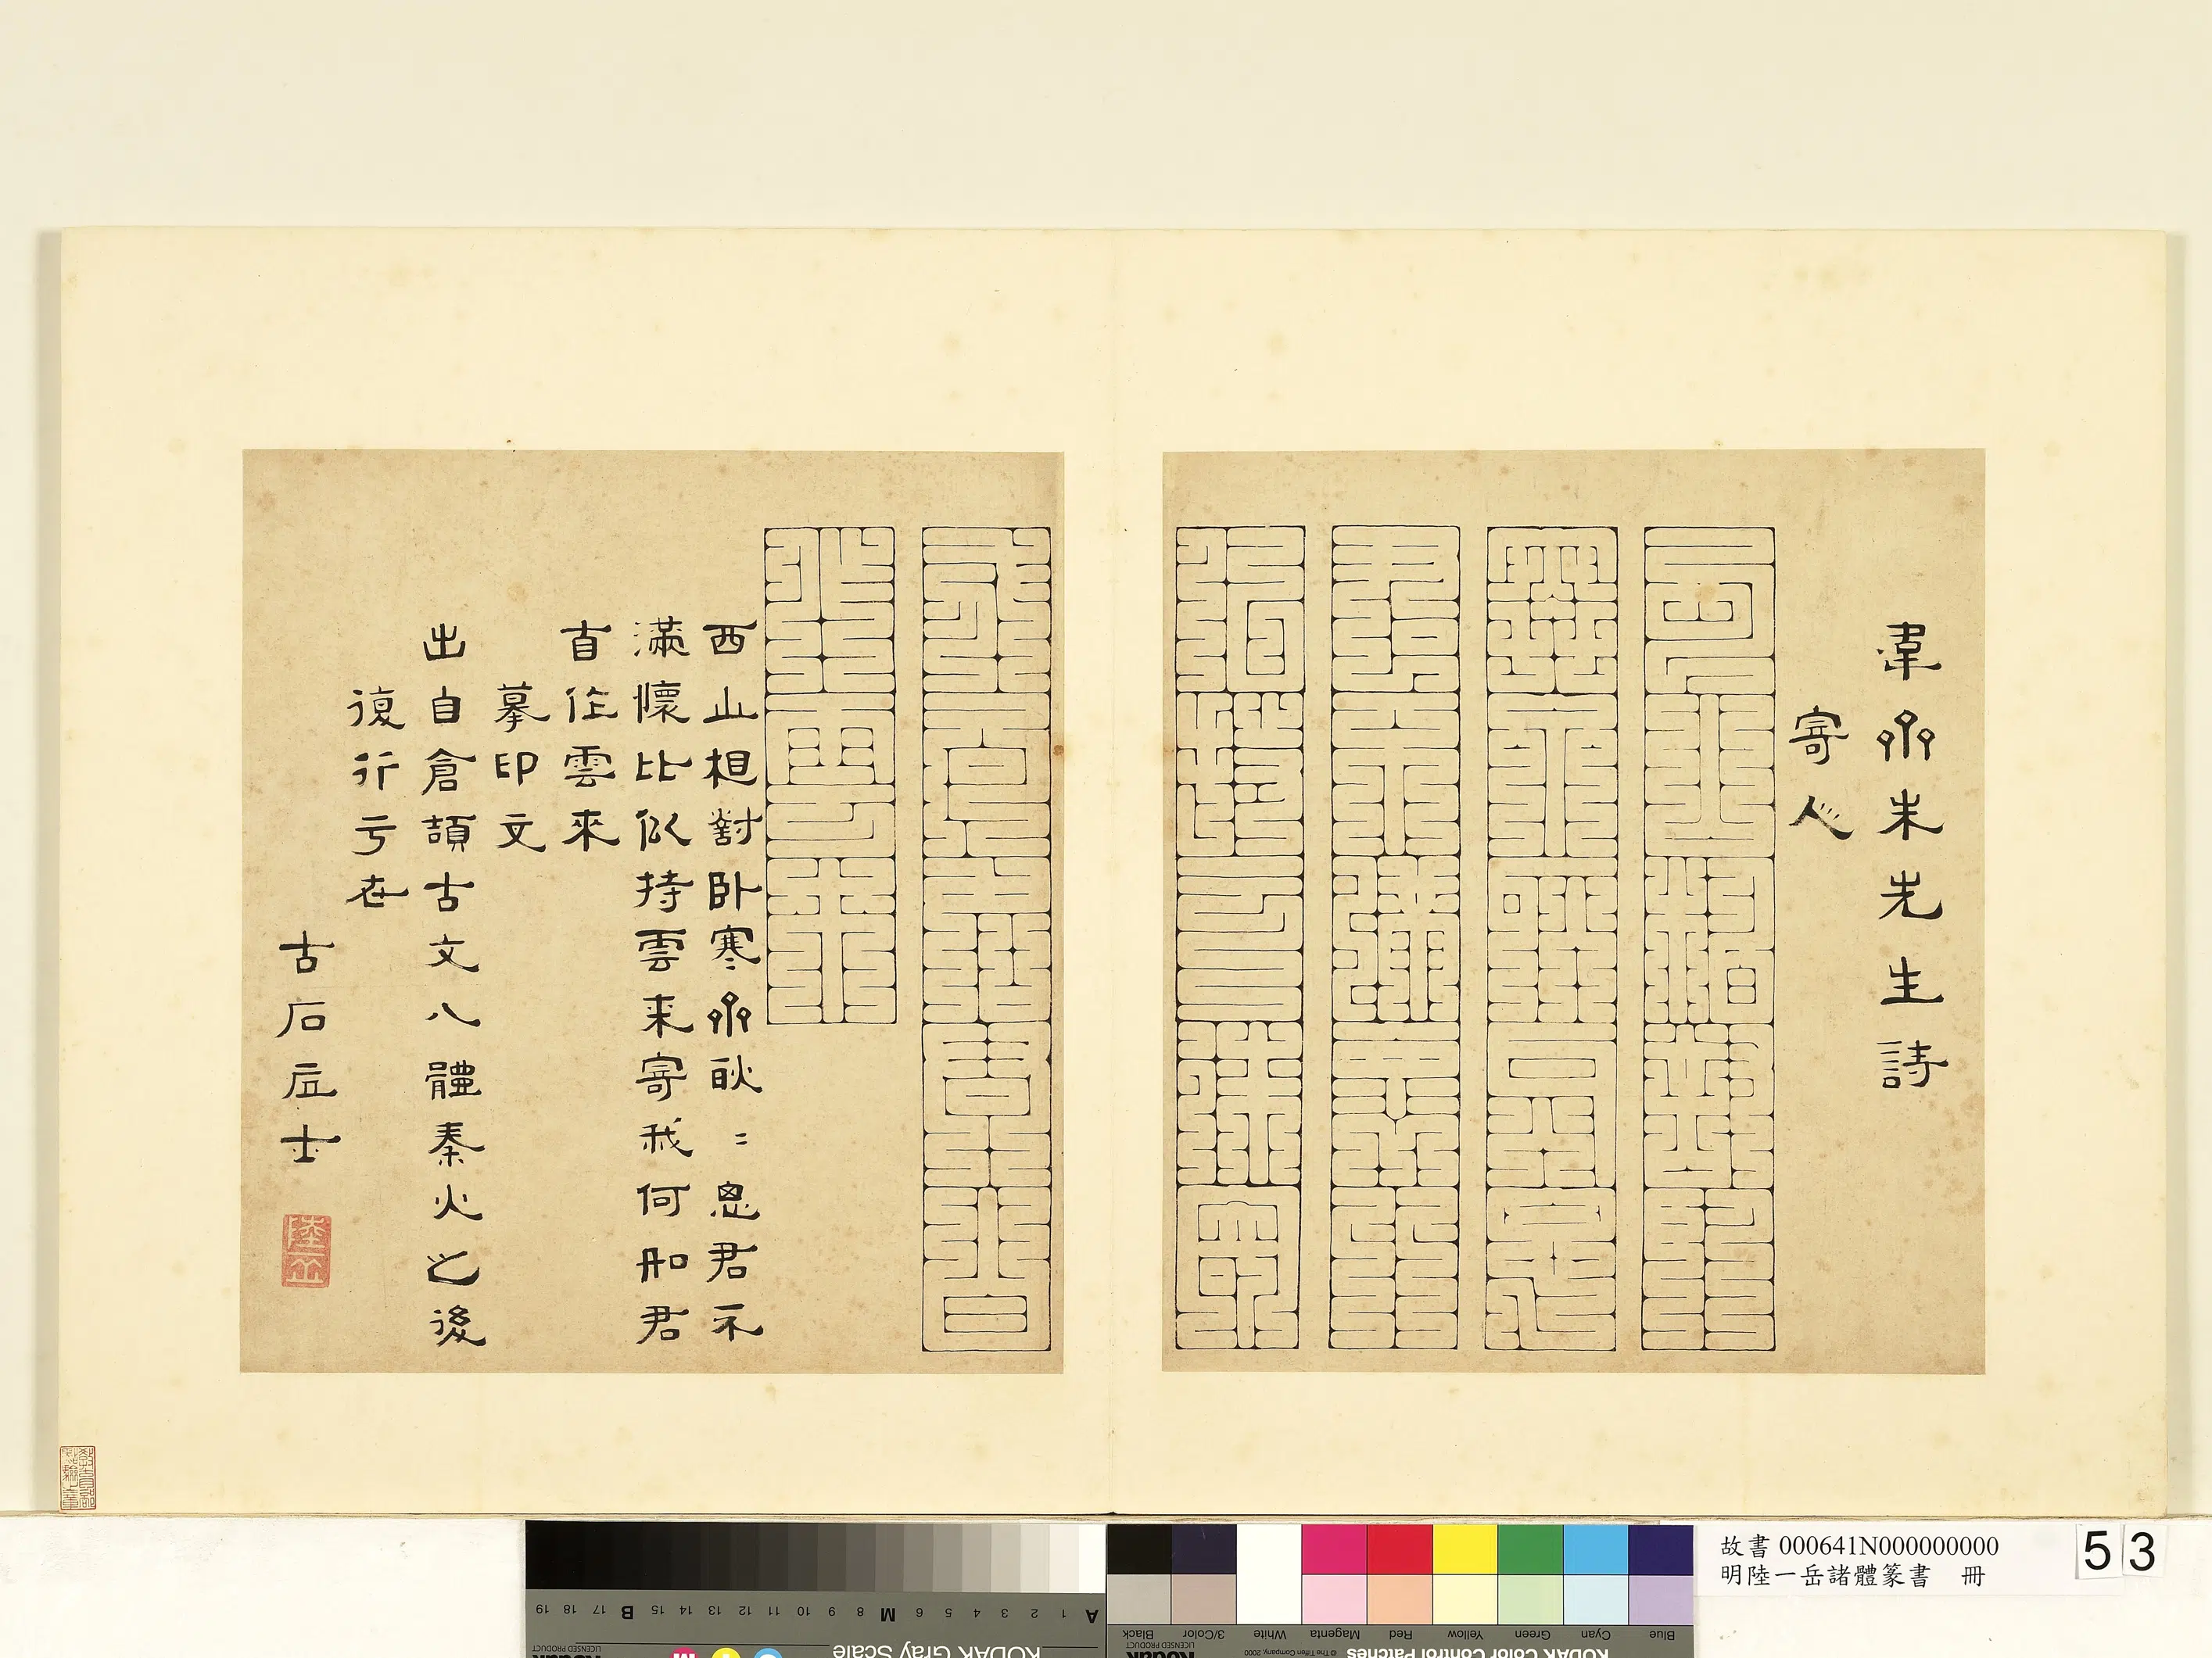 韋齋朱先生詩
寄人
西山相對臥
寒齋耿耿思
君不滿懷比
似持雲來寄
我何如君自
作雲來
西山相對臥寒齋耿〻思君不
滿懷比似持雲来寄我何如君
自作雲來
摹印文
出自倉頡古文八體秦火之後
復行亏世
古石居士
教育部點驗之章
故書 000641N000000000
明陸一岳諸體篆書 冊
53
KODAK Gray Scale
A 1 2 3 4 5 6 M 8 9 10 11 12 13 14 15 B 17 18 19
KODAK Color Control Patches
Blue Cyan Green Yellow Red Magenta White 3/Color Black